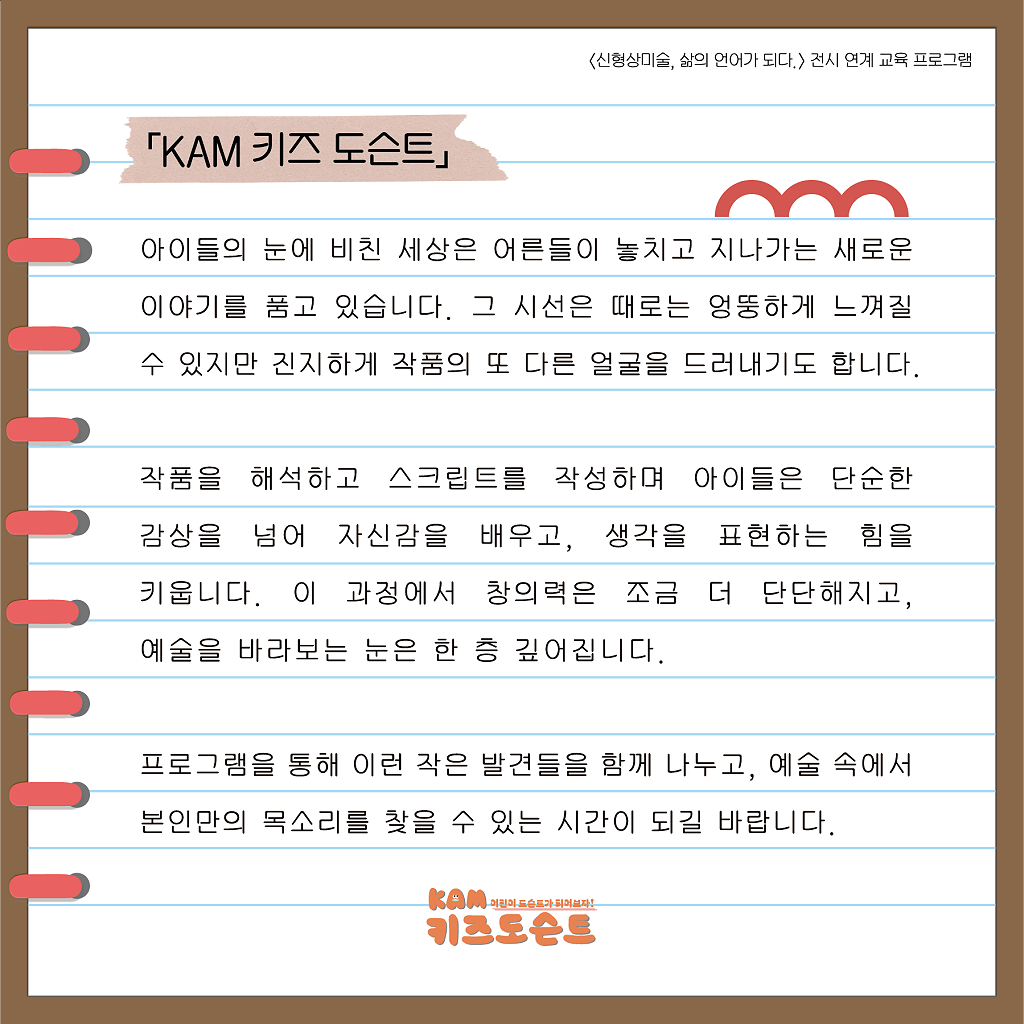 <신형상미술, 삶의 언어가 되다.> 전시 연계 교육 프로그램
「KAM 키즈 도슨트」
아이들의 눈에 비친 세상은 어른들이 놓치고 지나가는 새로운
이야기를 품고 있습니다. 그 시선은 때로는 엉뚱하게 느껴질
수 있지만 진지하게 작품의 또 다른 얼굴을 드러내기도 합니다.
작품을 해석하고 스크립트를 작성하며 아이들은 단순한
감상을 넘어 자신감을 배우고, 생각을 표현하는 힘을
키웁니다. 이 과정에서 창의력은 조금 더 단단해지고,
예술을 바라보는 눈은 한 층 깊어집니다.
프로그램을 통해 이런 작은 발견들을 함께 나누고, 예술 속에서
본인만의 목소리를 찾을 수 있는 시간이 되길 바랍니다.
KAM 어린이 도슨트가 되어보자!
키즈도슨트